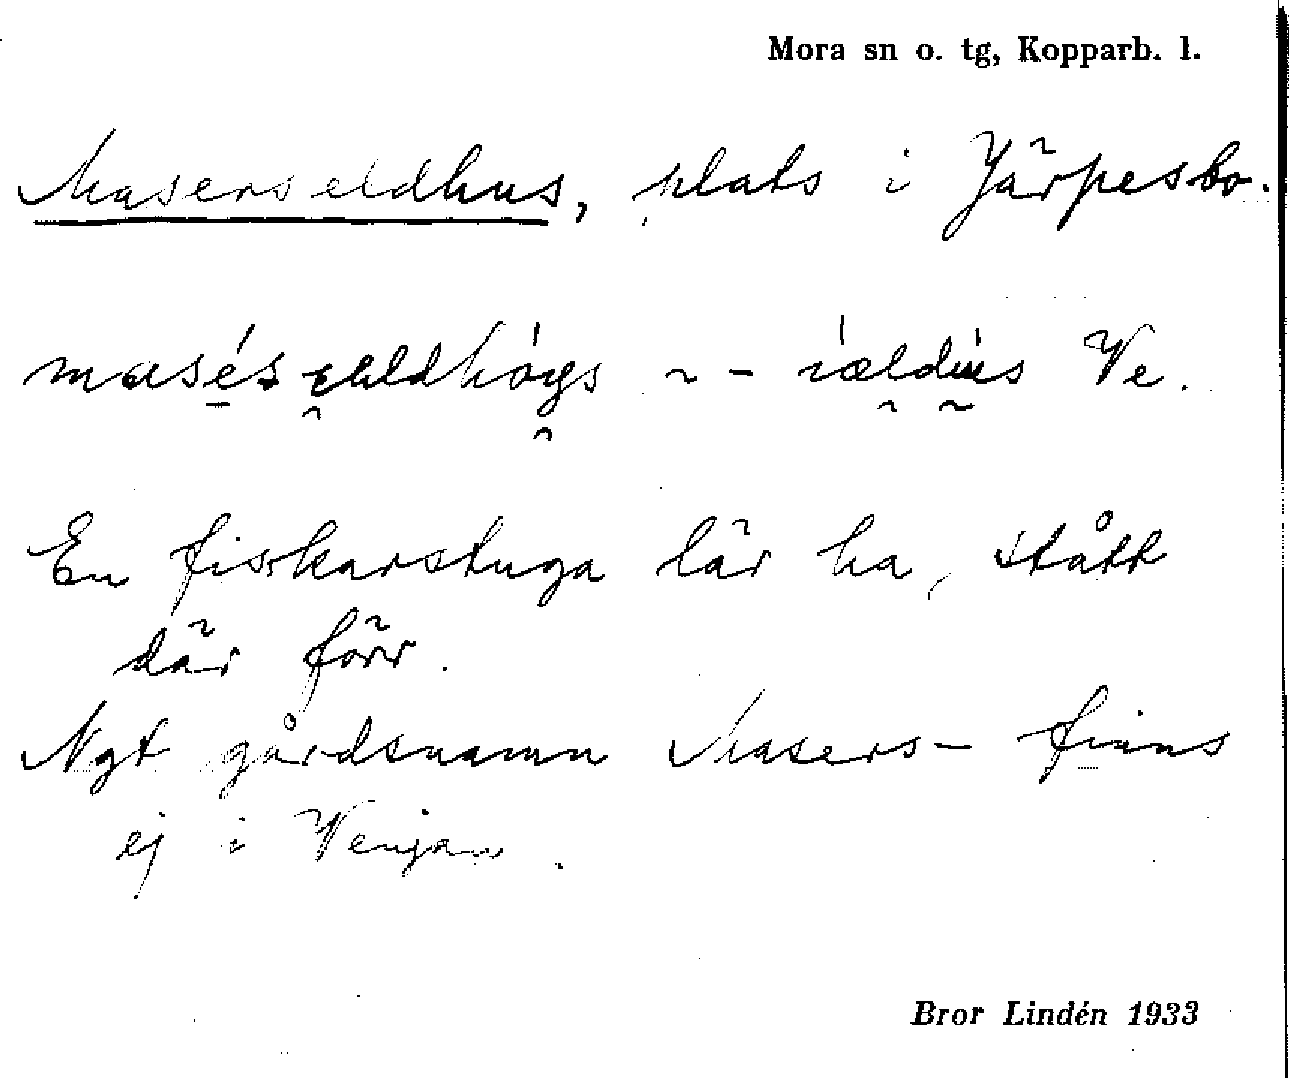 Mora sn o. tg, Kopparb. l.
Maserseldhus, plats i Järpesbo.
Ve.
En fiskarstuga lär ha stått
där förr.
Ngt gårdsnamn Masers- finns
ej i Venjan.
Bror Lindén 1933